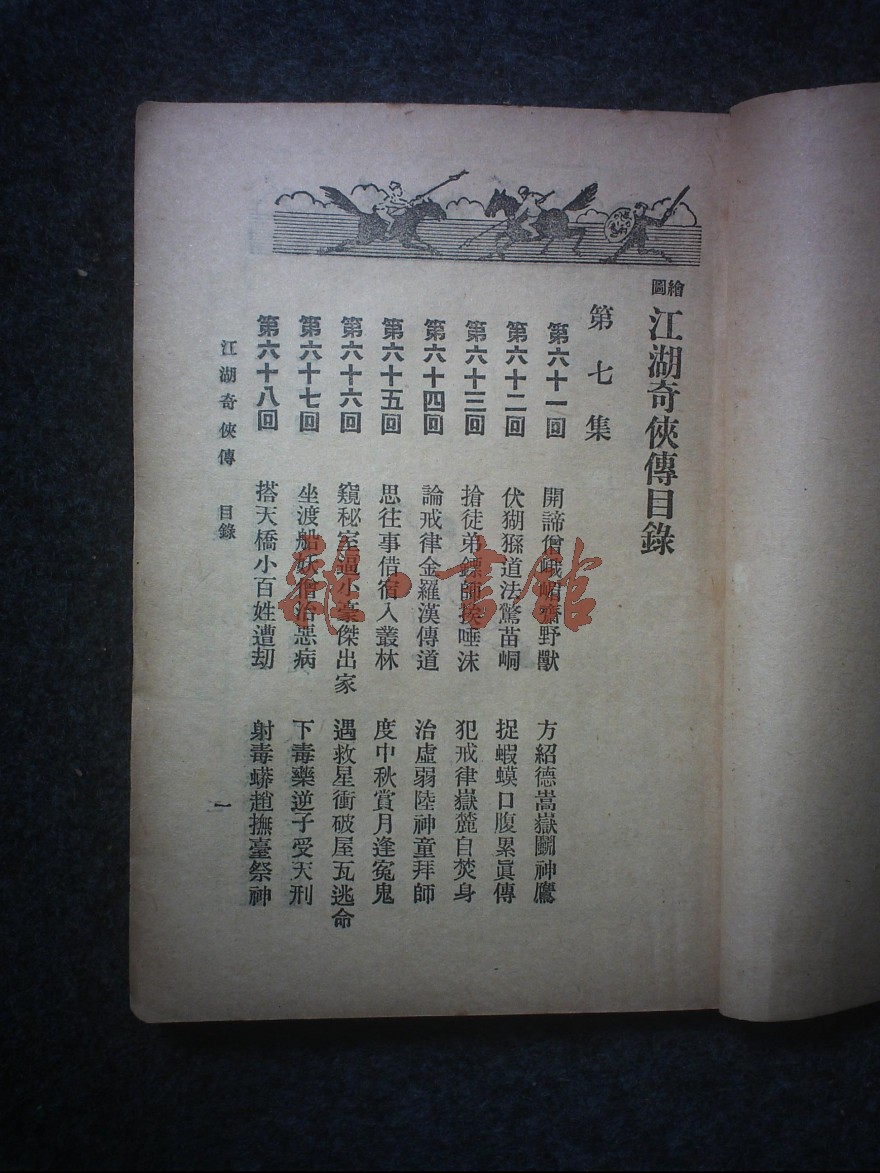 繪圖
江湖奇俠傳目錄
第七集
第六十一回 開諦僧峨嵋齋野獸 方紹德嵩嶽鬭神鷹
第六十二回 伏猢猻道法驚苗峒 捉蝦蟆口腹累眞傳
第六十三回 搶徒弟鏢師挨唾沫 犯戒律嶽麓自焚身
第六十四回 論戒律金羅漢傳道 治虛弱陸神童拜師
第六十五回 思往事借宿入叢林 度中秋賞月逢寃鬼
第六十六回 窺秘室逼小豪傑出家 遇救星衝破屋瓦逃命
第六十七回 坐渡船妖僧治惡病 下毒藥逆子受天刑
第六十八回 搭天橋小百姓遭刧 射毒蟒趙撫臺祭神
江湖奇俠傳 目錄
一
雜·書館